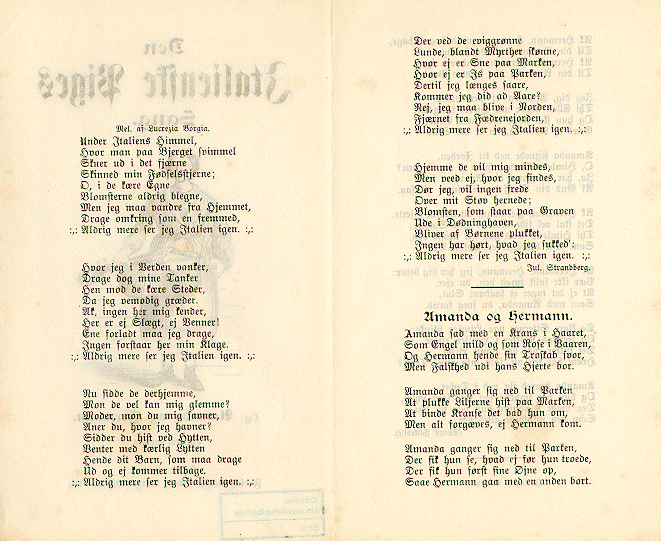 Mel. af Lucrezia Borgia.
Under Italiens Himmel,
Hvor man paa Bjerget svimmel
Skuer ud i det fjærne
Skinned min Fødselsstjerne;
O, i de kære Egne
Blomsterne aldrig blegne,
Men jeg maa vandre fra Hjemmet,
Drage omkring som en fremmed,
:,: Aldrig mere ser jeg Italien igen. :,:
Hvor jeg i Verden vanker,
Drage dog mine Tanker
Hen mod de kære Steder,
Da jeg vemodig græder.
Ak, ingen her mig kender,
Her er ej Slægt, ej Venner!
Ene forladt maa jeg drage,
Ingen forstaar her min Klage.
:,: Aldrig mere ser jeg Italien igen. :,:
Nu sidde de derhjemme,
Mon de vel kan mig glemme?
Moder, mon du mig savner,
Aner du, hvor jeg havner?
Sidder du hist ved Hytten,
Venter med kærlig Lytten
Hende dit Barn, som maa drage
Ud og ej kommer tilbage.
:,: Aldrig mere ser jeg Italien igen. :,:
Der ved de eviggrønne
Lunde, blandt Myrther skønne,
Hvor ej er Sne paa Marken,
Hvor ej er Is paa Parken,
Dertil jeg længes saare,
Kommer jeg did ad Aare?
Nej, jeg maa blive i Norden,
Fjærnet fra Fædrenejorden,
:,: Aldrig mere ser jeg Italien igen. :,:
Hjemme de vil mig mindes,
Men veed ej, hvor jeg findes,
Dør jeg, vil ingen frede
Over mit Støv hernede;
Blomsten, som staar paa Graven
Ude i Dødninghaven,
Bliver af Børnene plukket,
Ingen har hørt, hvad jeg sukked':
:,: Aldrig mere ser jeg Italien igen. :,:
Jul. Strandberg.
Amanda og Hermann.
Amanda sad med en Krans i Haaret,
Som Engel mild og som Rose i Vaaren,
Og Hermann hende sin Troskab svor,
Men Falskhed udi hans Hjerte bor.
Amanda ganger sig ned til Parken
At plukke Liljerne hist paa Marken,
At binde Kranse det bad hun om,
Men alt forgæves, ej Hermann kom.
Amanda ganger sig ned til Parken,
Der fik hun se, hvad ej før hun troede,
Der fik hun først sine Øjne op,
Saae Hermann gaa med en anden bort.